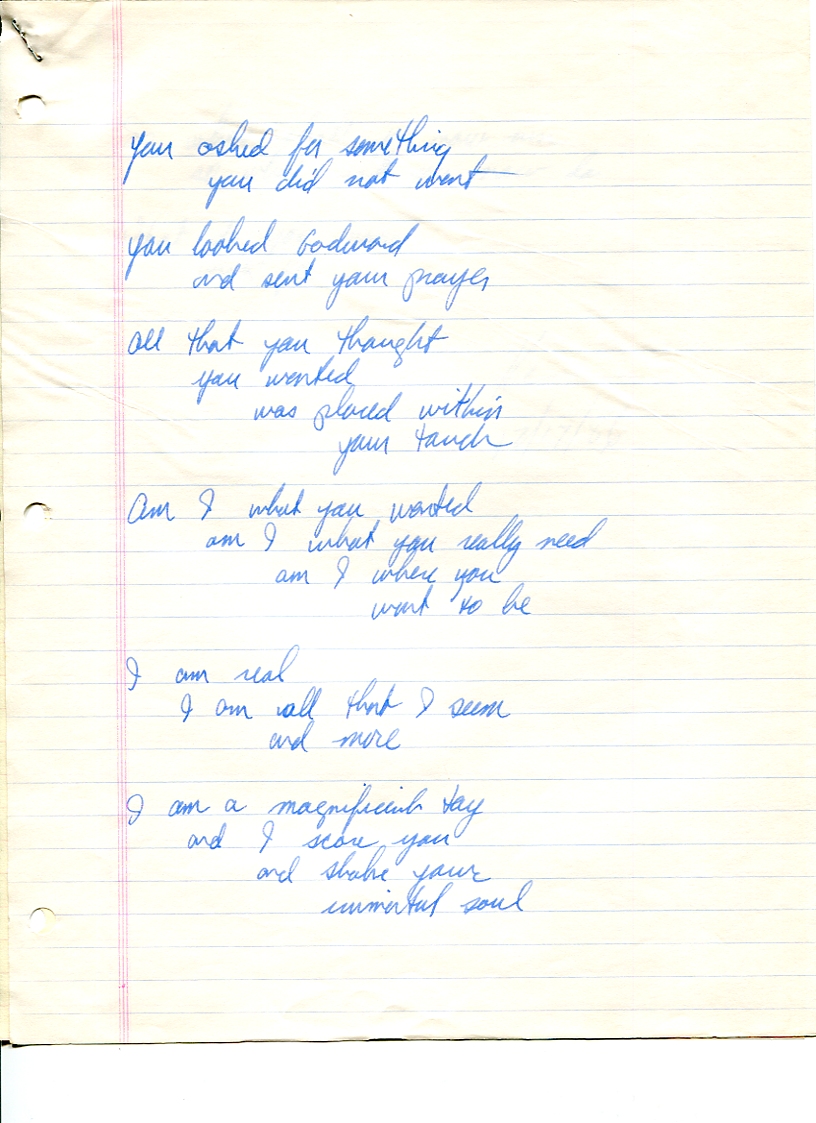 you asked for something
you did not want
you looked Godward
and sent your prayer
all that you thought
you wanted
was placed within
your touch
Am I what you wanted
am I what you really need
am I where you
want to be
I am real
I am all that I seem
and more
I am a magnificent toy
and I scare you
and shake your
immortal soul